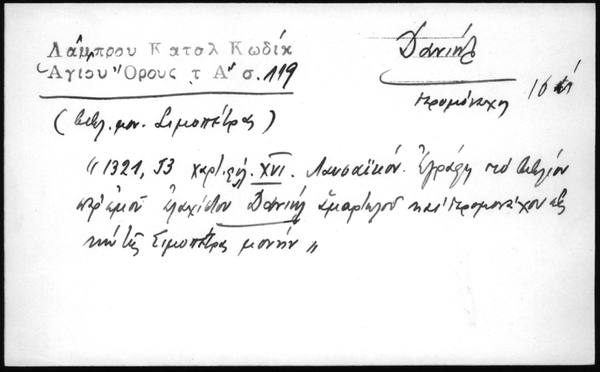 Λάμπρου Καταλ Κωδίκ
Ἁγίου "Ορους τ Α" σ. 119
Δανιήλ
ἱερομόναχος 16
(Βιβλ. μον. Σιμοπέτρας)
" 1321, 53 χαρτ. φυλ. XVI. Λαυσαϊκόν. Ἐγράφη τὸ βιβλίον
παρ' ἐμοῦ ἐλαχίστου Δανιὴλ ἁμαρτωλοῦ καὶ ἱερομονάχου εἰς
τὴν τῆς Σιμοπέτρας μονήν "